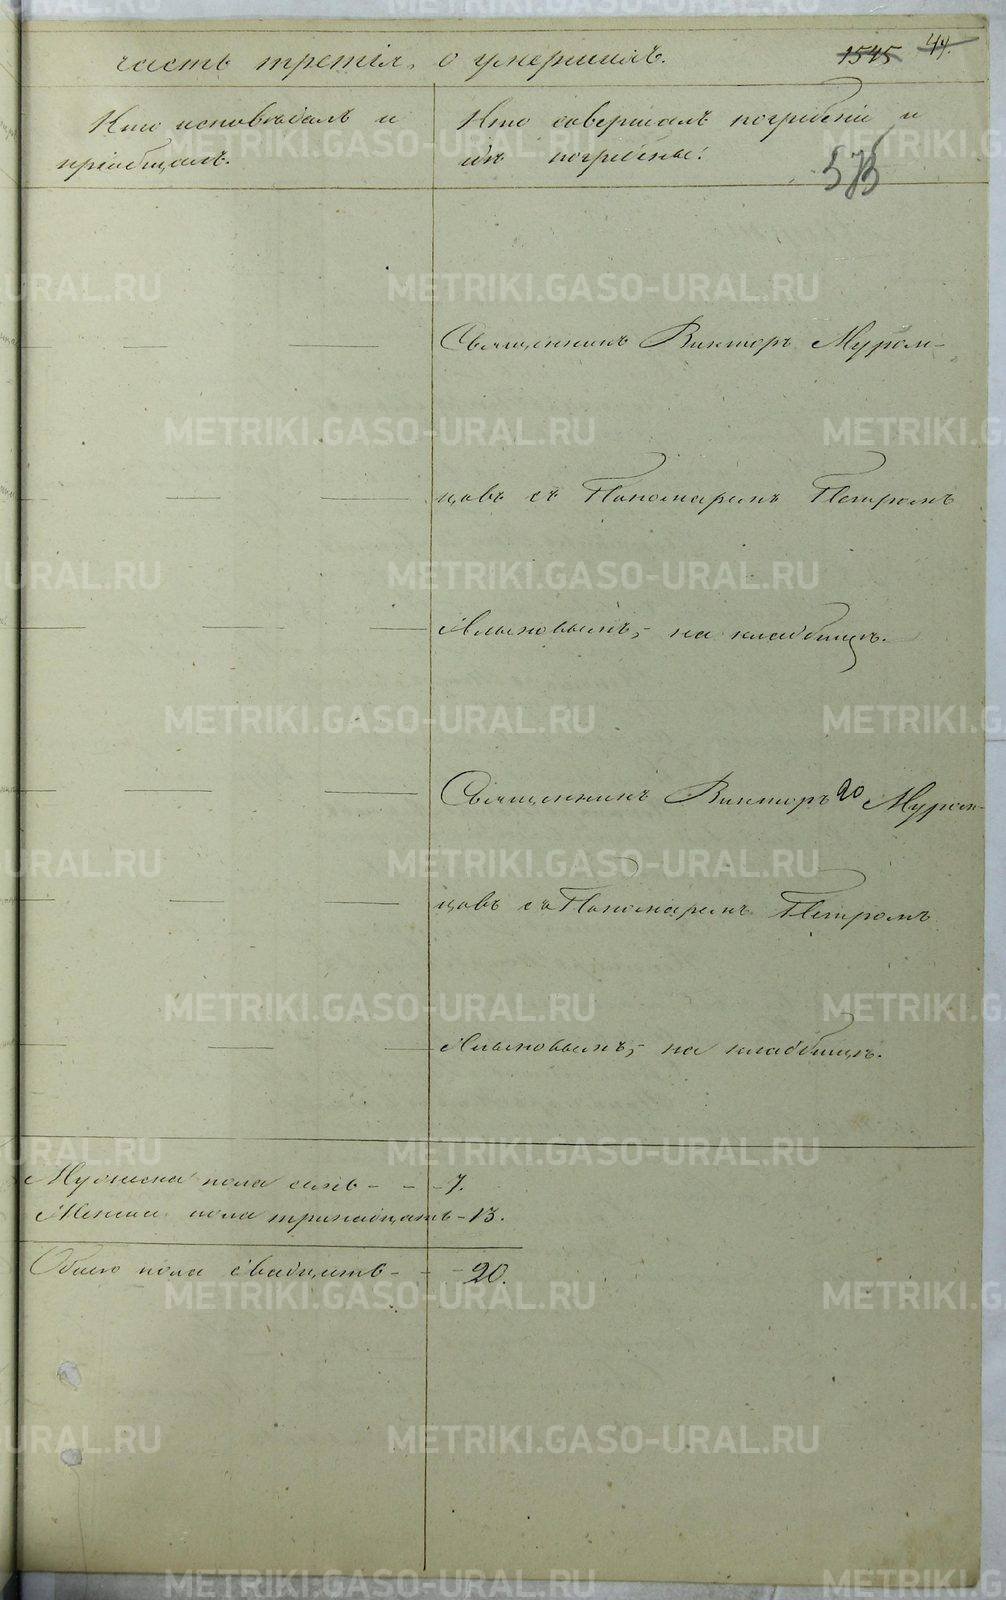 часть третія, о умершихъ.
1545 44.
Кто исповѣдалъ и
пріобщалъ.
Кто совершалъ погребеніе и
гдѣ погребены.
573
Священникъ Викторъ Муром-
цовъ съ Пономаремъ Петромъ
на кладбищѣ.
Священникъ Викторъ Муром-
20
цовъ съ Пономаремъ Петромъ
на кладбищѣ.
Мужеска пола семь - - - 7.
Женска пола тринадцать - 13.
Обоего пола двадцать - - - 20.
METRIKI.GASO-URAL.RU